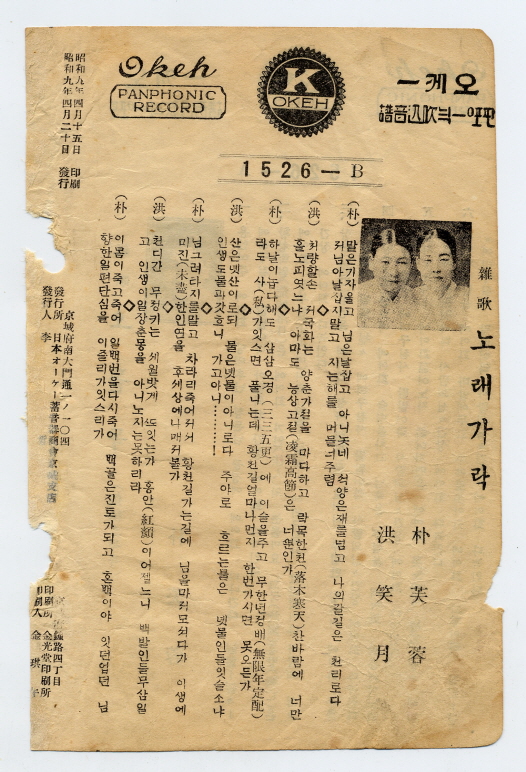 Okeh
PANPHONIC
RECORD
K
OKEH
오케ー
1526 — B
雜歌 노래가락
朴芙蓉
洪笑月
(朴) 말은가자울고 님은날잡고 아니놋네 석양은재를넘고 나의갈길은 천리로다
커님아날잡지말고 지는해를 머믈너주렴
◇
(洪) 처량할손 커국화는 양춘가절을 마다하고 락목한천(落木寒天)찬바람에 너만
홀노피엿느냐 아마도 능상고절(凌霜高節)은 너뿐인가
◇
(朴) 하날이놉다해도 삼삼오경(三三五更)에 이슬을주고 무한년정배(無限年定配)
라도 사(私)가잇스면 풀니는데 황천길얼마나먼지 한번가시면 못오든가
◇
(洪) 산은녯산이로되 물은녯물이아니로다 주야로 흐르는물은 녯물인들잇슬소냐
인생도물과갓흐냐 가고아니………!
◇
(朴) 님그려타지를말고 차라리죽어커서 황천길가는길에 님을마커모쇠다가 이생에
미진(未盡)한인연을 후세상에나매커볼가
◇
(洪) 천디간 무정키는 세월밧게 또잇는가 홍안(紅顔)이어젤느니 백발인들무삼일
고 인생이일장춘몽을 아니노지는못하리라
◇
(朴) 이몸이죽고죽어 일백번을다시죽어 백골은진토가되고 혼백이야 잇던업던 님
향한일편단심을 이줄리가잇스리가
昭和九年四月十五日 印刷
昭和九年四月二十日 發行
京城府南大門通一ノ一〇四
發行所 日本オーケー蓄音器商會京城支店
發行人 李
路四丁目
印刷所 金光堂印刷所
印刷人 金琪